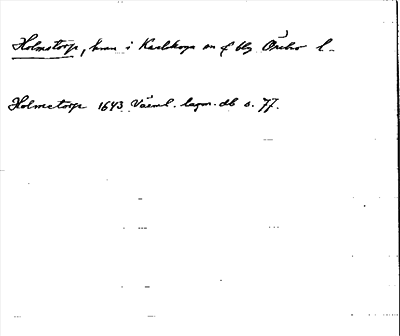 Holmstorp, hmn i Karlskoga sn o bg Örebro l.
Holmetorp 1643 Värml. lagm. db s. 77.